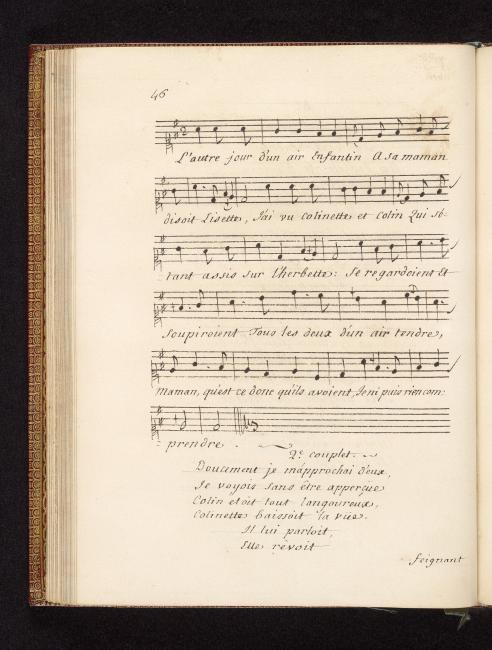 46
L'autre jour d'un air Enfantin A sa maman
disoit Lisette, J'ai vu Colinette et Colin Qui sé-
tant assis sur l'herbette. Se regardoient Et
Soupiroient Tous les deux d'un air tendre,
maman, qu'est ce donc qu'ils avoient, Je ni puis rien com:
prendre.
2.e couplet.
Doucement je m'approchai d'eux,
Je voyois sans être apperçüe
Colin etoit tout langoureux,
Colinette baissoit la vüe.
Il lui parloit,
Elle rêvoit
feignant